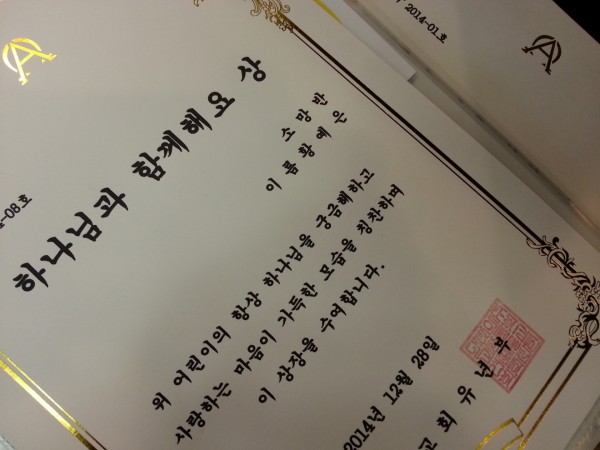 -08호
하나님과 함께해요 상
소망반
이름황예은
위 어린이의 항상 하나님을 궁금해하고
사랑하는 마음이 가득한 모습을 칭찬하며
이 상장을 수여합니다.
2014년 12월 28일
교회유년부
2014-01호